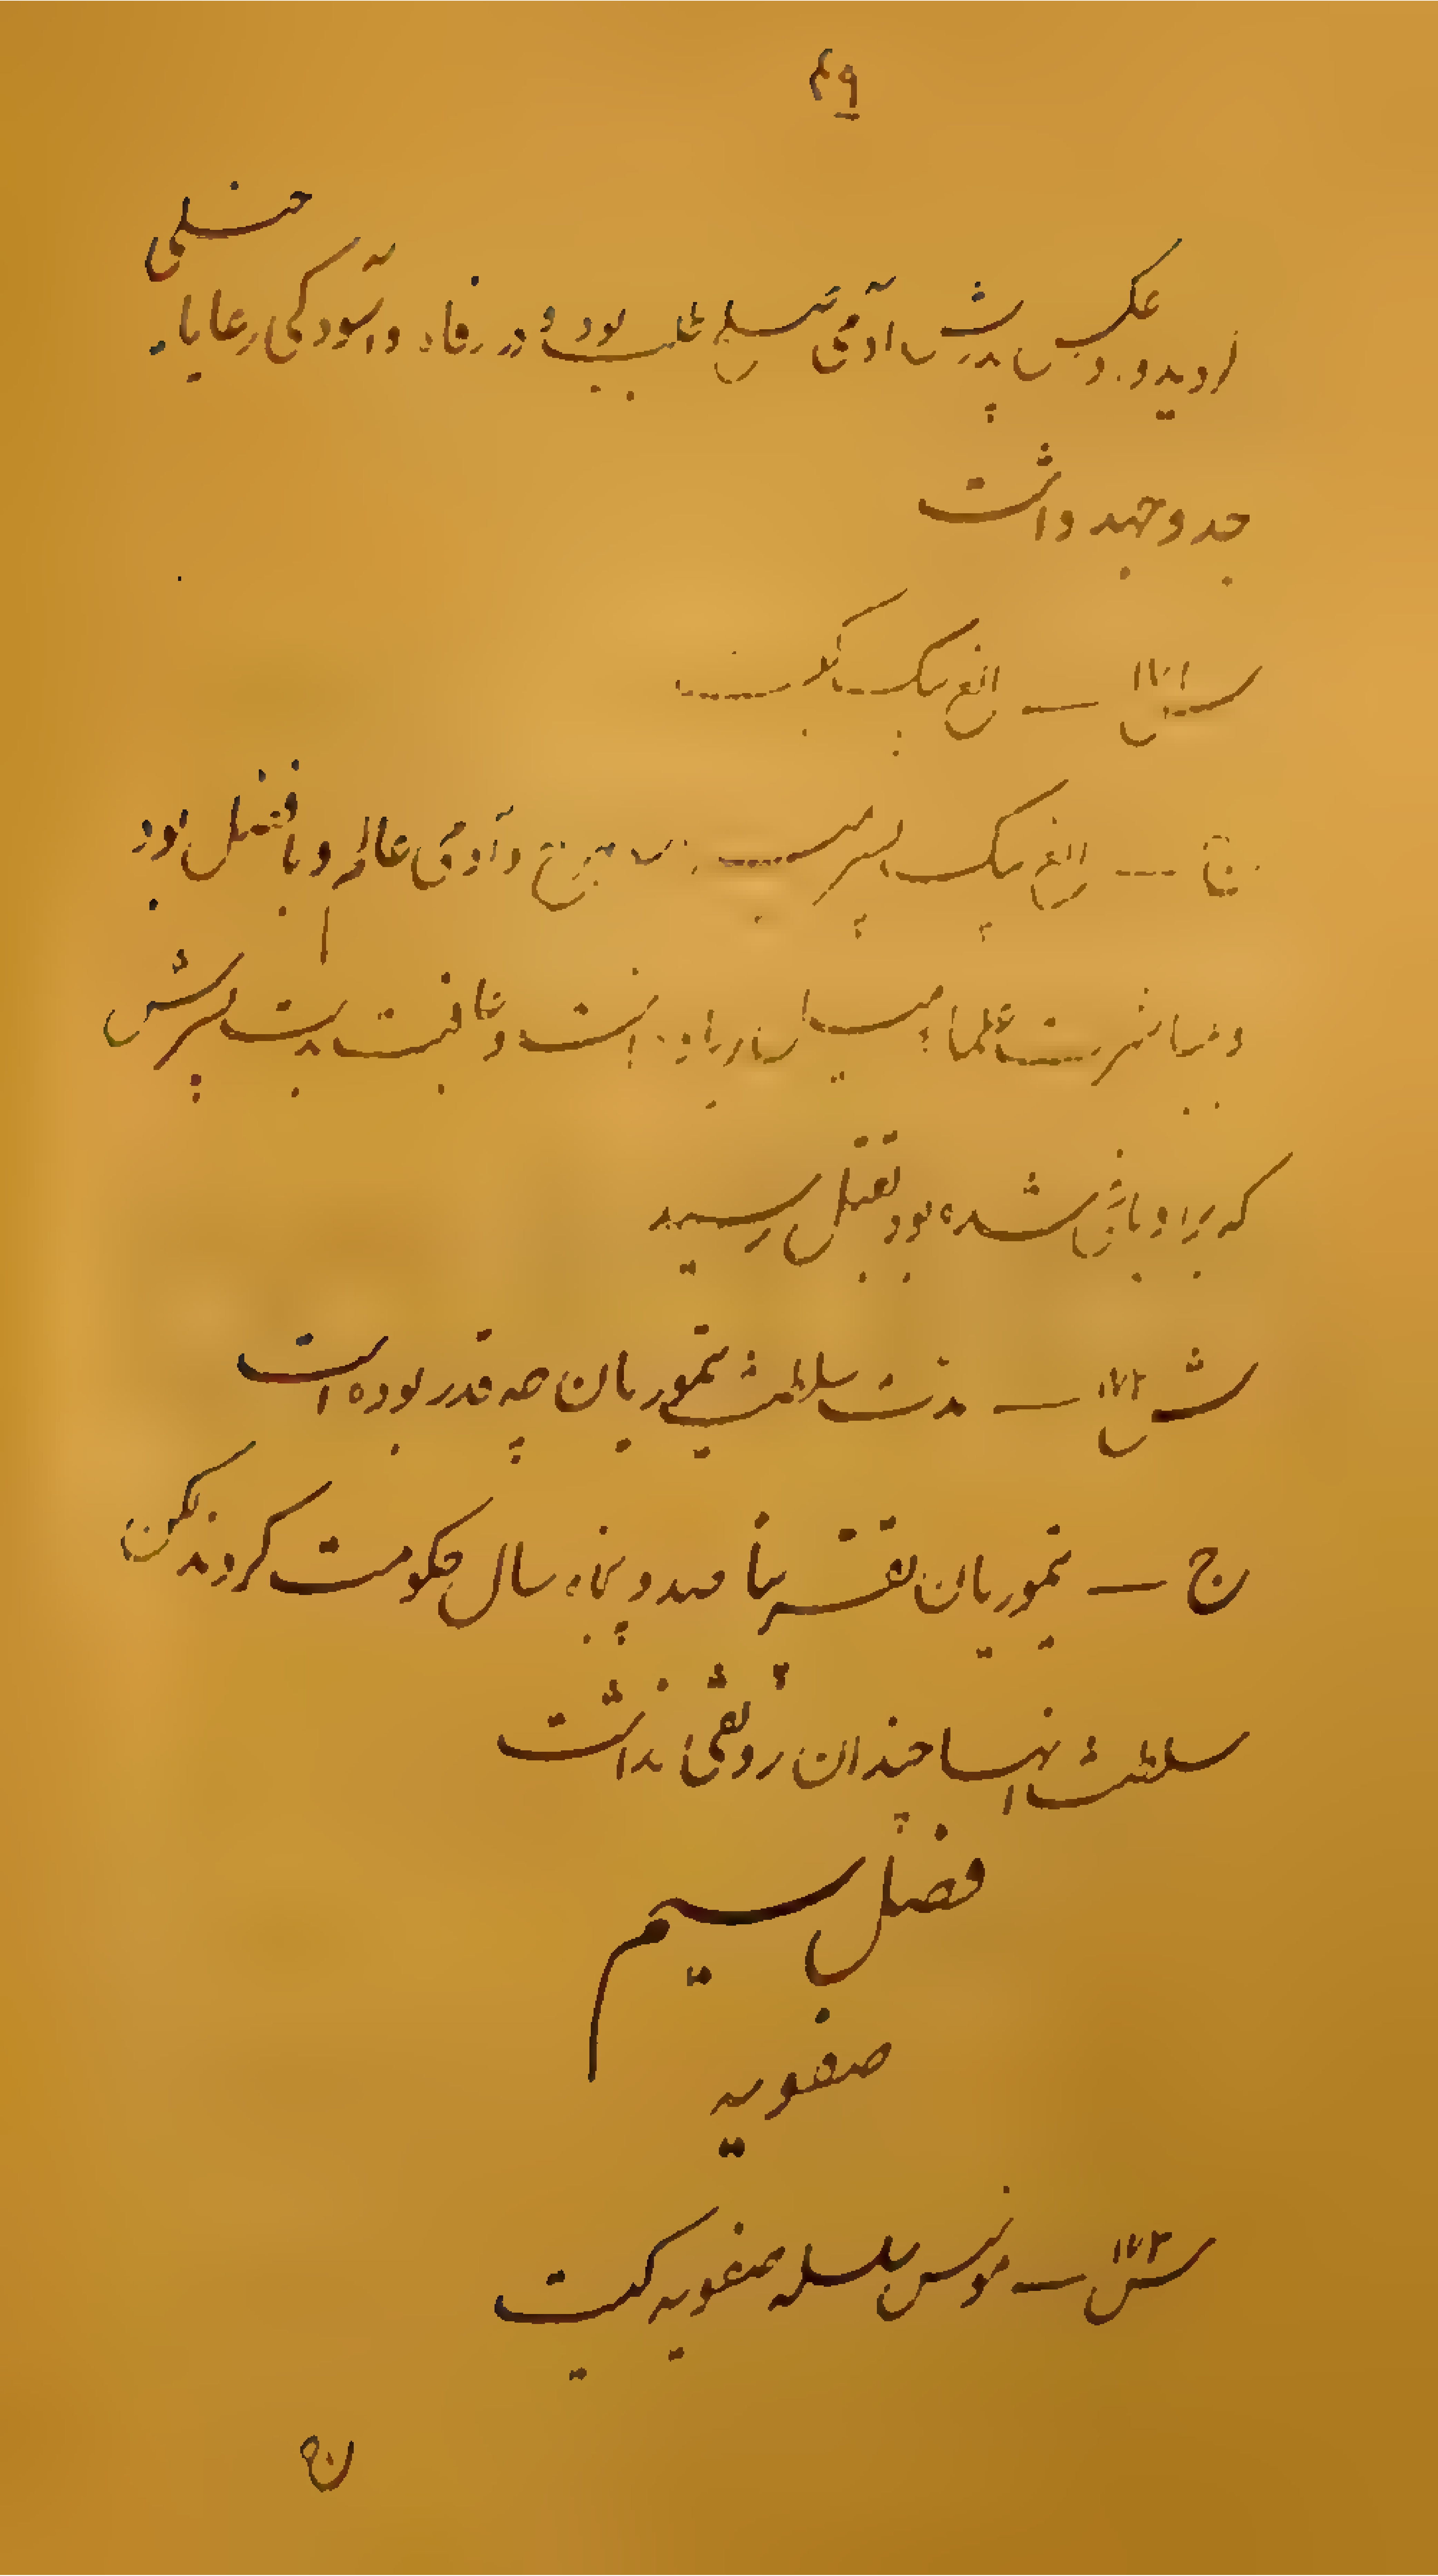 ۴۹
گردید و برعکس پدرش آدمی صلح طلب بود و در رفاه و آسودگی رعایا خیلی
جد و جهد داشت
س ۱۷۱ — الغ بیک که بود
ج — الغ بیک پسر میرزا شاهرخ و آدمی عالم و بافضل بود
و معاشرت علماء بسیار را دوست داشت و عاقبت بدست پسرش
که بر او یاغی شده بود بقتل رسید
س ۱۷۲ — مدت سلطنت تیموریان چه قدر بوده است
ج — تیموریان تقریباً صد و پنجاه سال حکومت کردند لکن
سلطنت آنها چندان رونقی نداشت
فصل سیم
صفویه
س ۱۷۳ — مؤسس سلسله صفویه کیست
ج